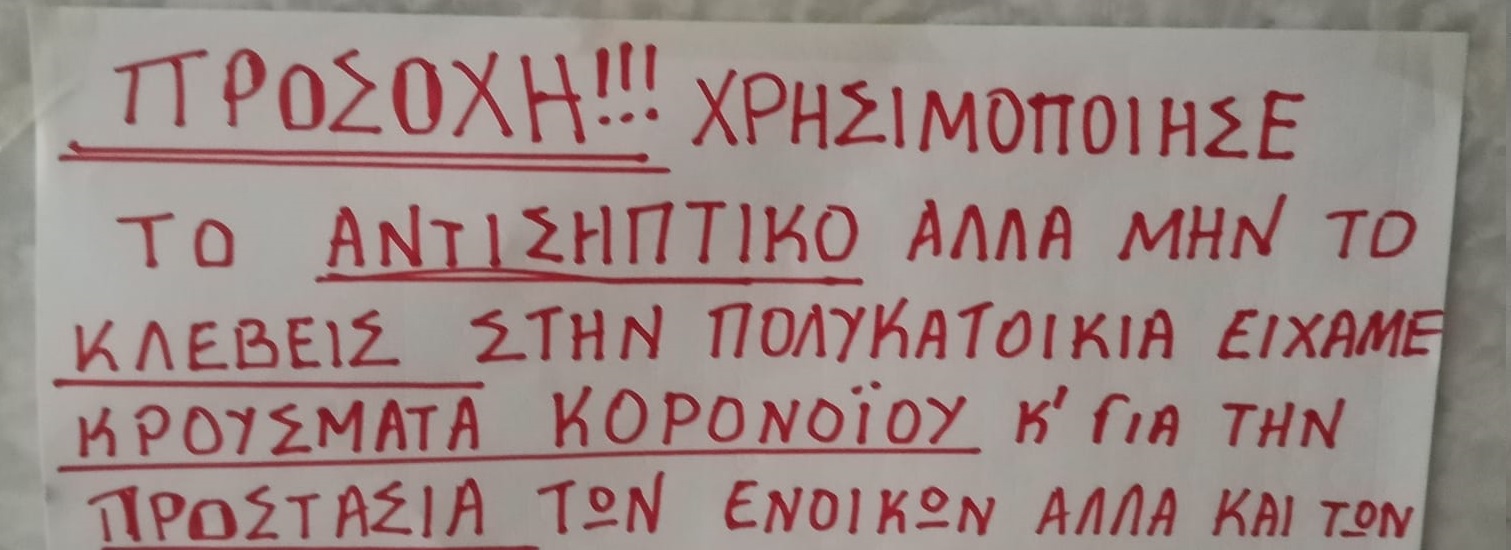 ΠΡΟΣΟΧΗ!!! ΧΡΗΣΙΜΟΠΟΙΗΣΕ
ΤΟ ΑΝΤΙΣΗΠΤΙΚΟ ΑΛΛΑ ΜΗΝ ΤΟ
ΚΛΕΒΕΙΣ ΣΤΗΝ ΠΟΛΥΚΑΤΟΙΚΙΑ ΕΙΧΑΜΕ
ΚΡΟΥΣΜΑΤΑ ΚΟΡΟΝΟΪΟΥ Κ' ΓΙΑ ΤΗΝ
ΠΡΟΣΤΑΣΙΑ ΤΩΝ ΕΝΟΙΚΩΝ ΑΛΛΑ ΚΑΙ ΤΩΝ